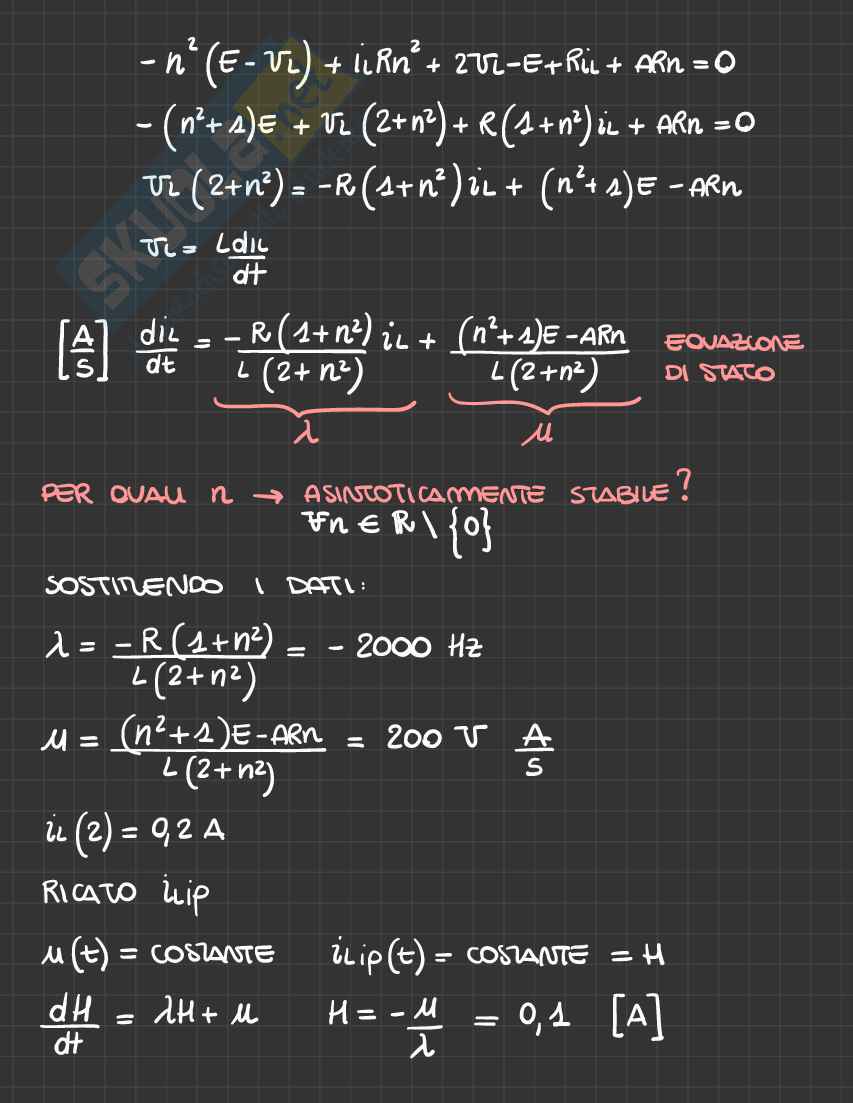 -n²(E-VL)+iLRn²+2VL-E+RiL+ARn=0
-(n²+1)E+VL(2+n²)+R(1+n²)iL+ARn=0
VL(2+n²)=-R(1+n²)iL+(n²+1)E-ARn
VL=LdiL/dt
[A/S] diL/dt = -R(1+n²)/L(2+n²) iL + (n²+1)E-ARn/L(2+n²) EQUAZIONE DI STATO
λ μ
PER QUALI n → ASINTOTICAMENTE STABILE?
∀n ∈ R \ {0}
SOSTITUENDO I DATI:
λ = -R(1+n²)/L(2+n²) = -2000 Hz
μ = (n²+1)E-ARn/L(2+n²) = 200 V A/S
iL(2) = 0,2 A
RICAVO iLip
μ(t) = COSTANTE iLip(t) = COSTANTE = H
dH/dt = λH + μ H = -μ/λ = 0,1 [A]
SKUOLA.net